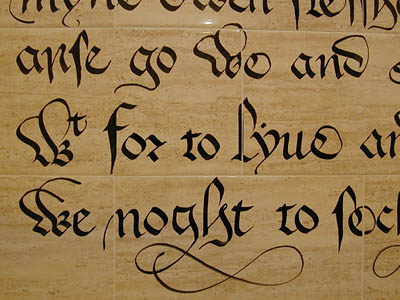 myne owen flessh
aryse go we and
Wt for to lyue an
We noght to sech